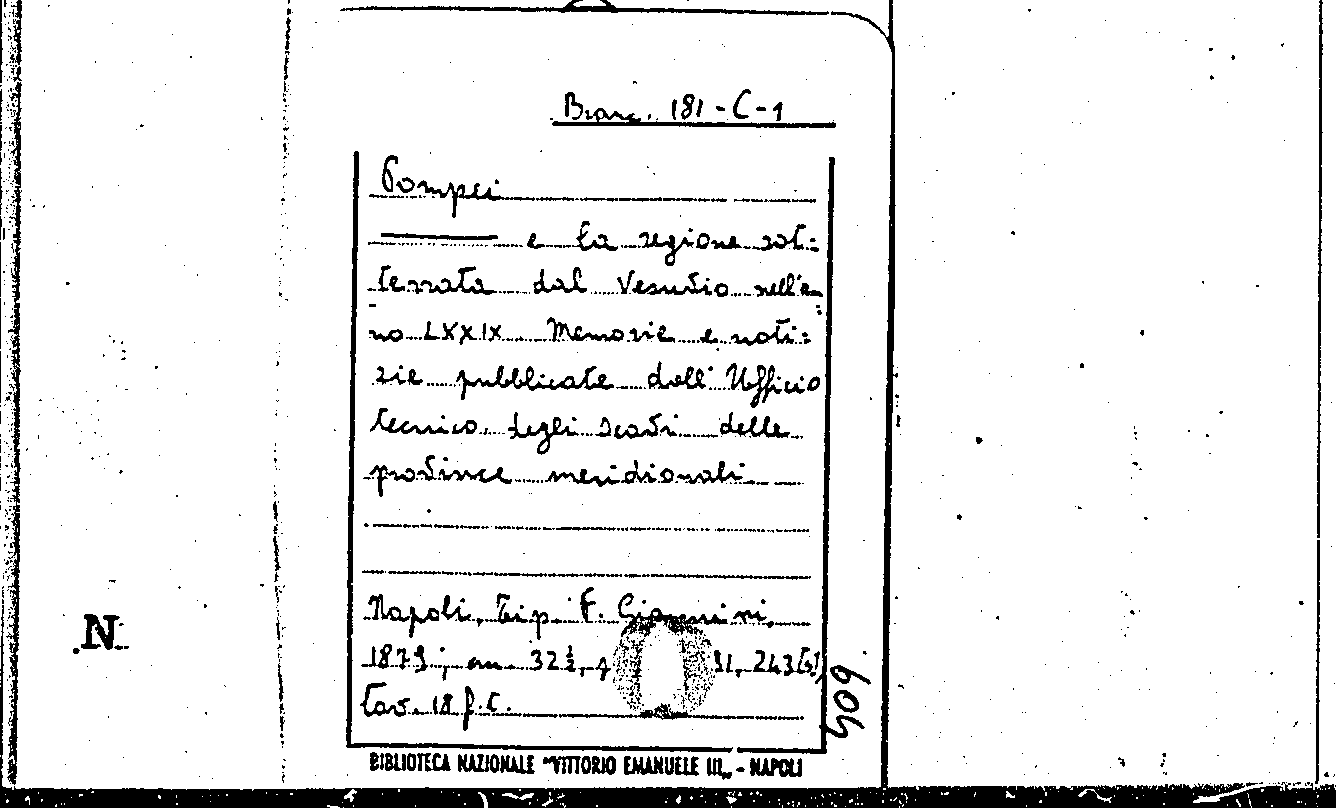 Branc. 181-C-1
Pompei
——— e la regione sot=
terrata dal Vesuvio nell'an=
no LXXIX Memorie e noti=
zie pubblicate dall'Ufficio
tecnico degli scavi delle
province meridionali
Napoli, Tip. F. Giannini,
1879; cm. 32½, 243
tav. 18 f.t.
BIBLIOTECA NAZIONALE "VITTORIO EMANUELE III" - NAPOLI
N.